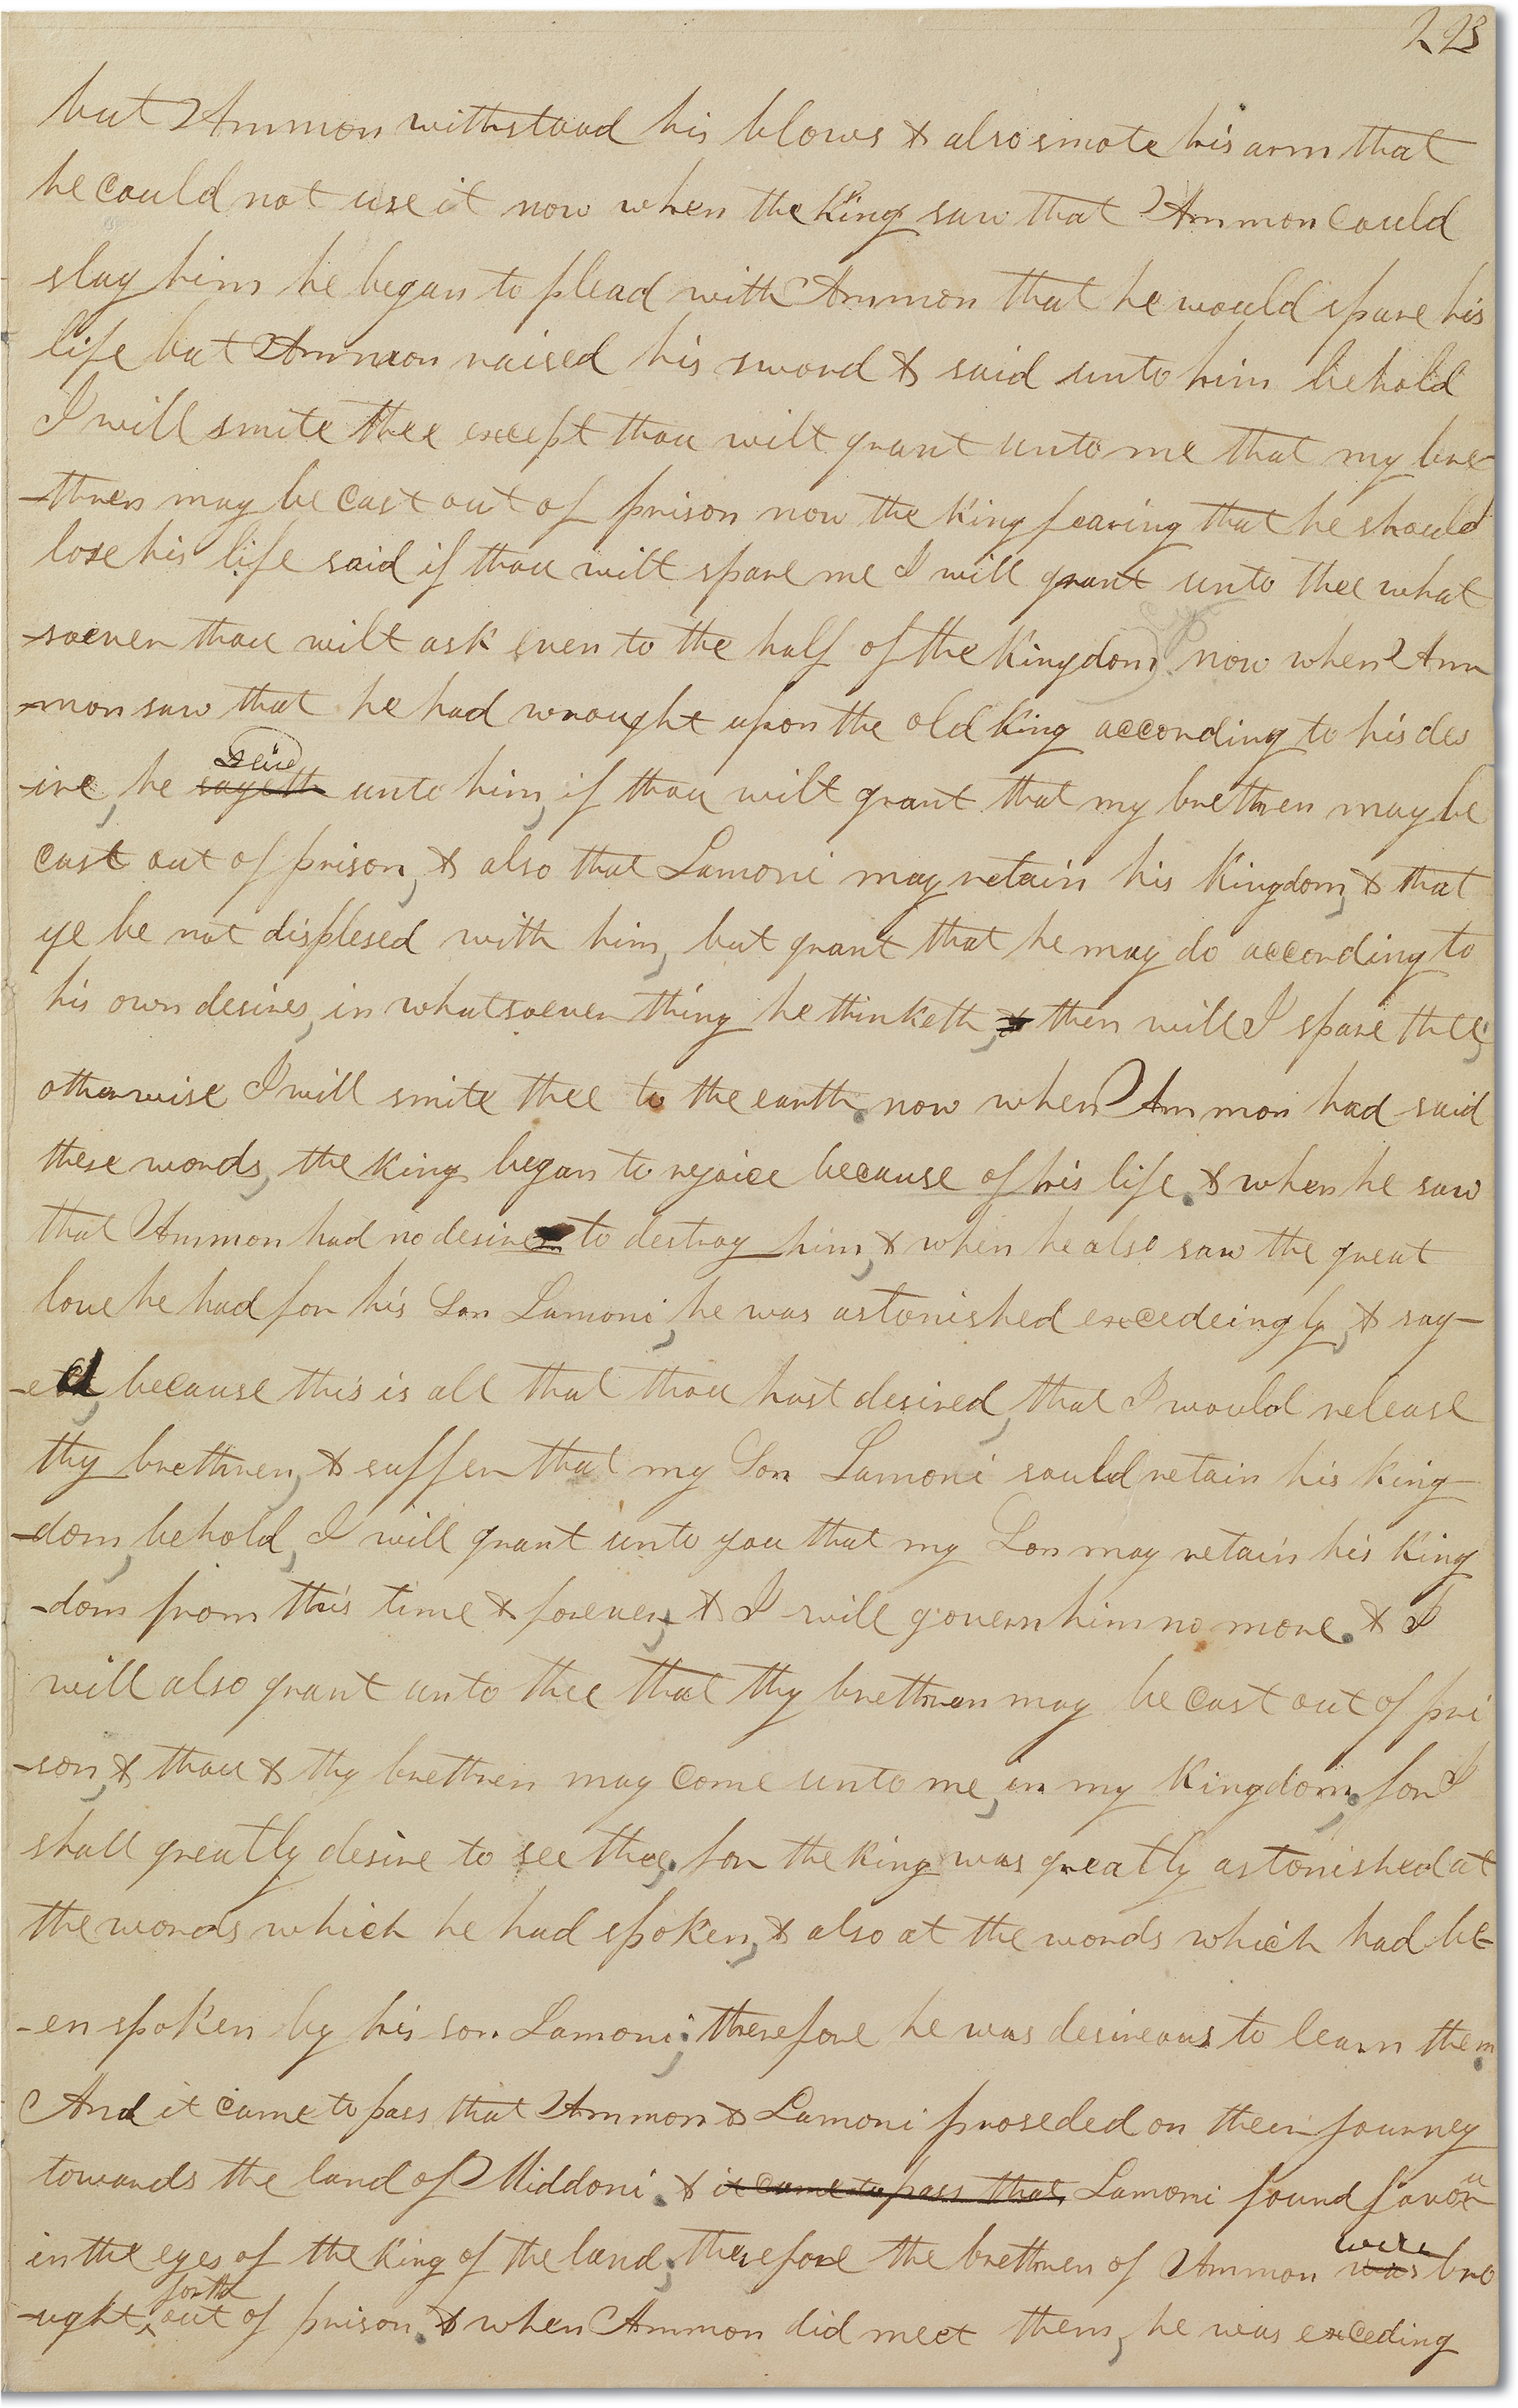 223
but Ammon withstood his blows & also smote his arm that
he could not use it now when the King saw that Ammon could
slay him he began to plead with Ammon that he would spare his
life but Ammon raised his sword & said unto him behold
I will smite thee except thou wilt grant unto me that my bre
-thren may be cast out of prison now the King fearing that he should
lose his life said if thou wilt spare me I will grant unto thee what
-soever thou wilt ask even to the half of the Kingdom now when Am
-mon saw that he had wrought upon the old King according to his des
said
-ire, he sayeth unto him, if thou wilt grant that my brethren may be
cast out of prison, & also that Lamoni may retain his Kingdom, & that
ye be not displesed with him, but grant that he may do according to
his own desires, in whatsoever thing he thinketh, & then will I spare thee;
otherwise I will smite thee to the earth. now when Ammon had said
these words, the King began to rejoice because of his life. & when he saw
that Ammon had no desire to destroy him, & when he also saw the great
love he had for his Son Lamoni, he was astonished excedeingly, & say-
-ed, because this is all that thou hast desired, that I would release
thy brethren, & suffer that my Son Lamoni sould retain his king
-dom, behold, I will grant unto you that my Son may retain his King
-dom from this time & forever, & I will govern him no more. & I
will also grant unto thee that thy brethren may be cast out of pri
-son, & thou & thy brethren may come unto me, in my Kingdom, for I
shall greatly desire to see thee. for the King was greatly astonished at
the words which he had spoken, & also at the words which had be
-en spoken by his son Lamoni; therefore he was desireous to learn them.
And it came to pass that Ammon & Lamoni proseded on their journey
towards the land of Middoni. & it came to pass that Lamoni found favor
u
in the eyes of the King of the land; therefore the brethren of Ammon was bro
were
forth
-ught out of prison. & when Ammon did meet them, he was exceding